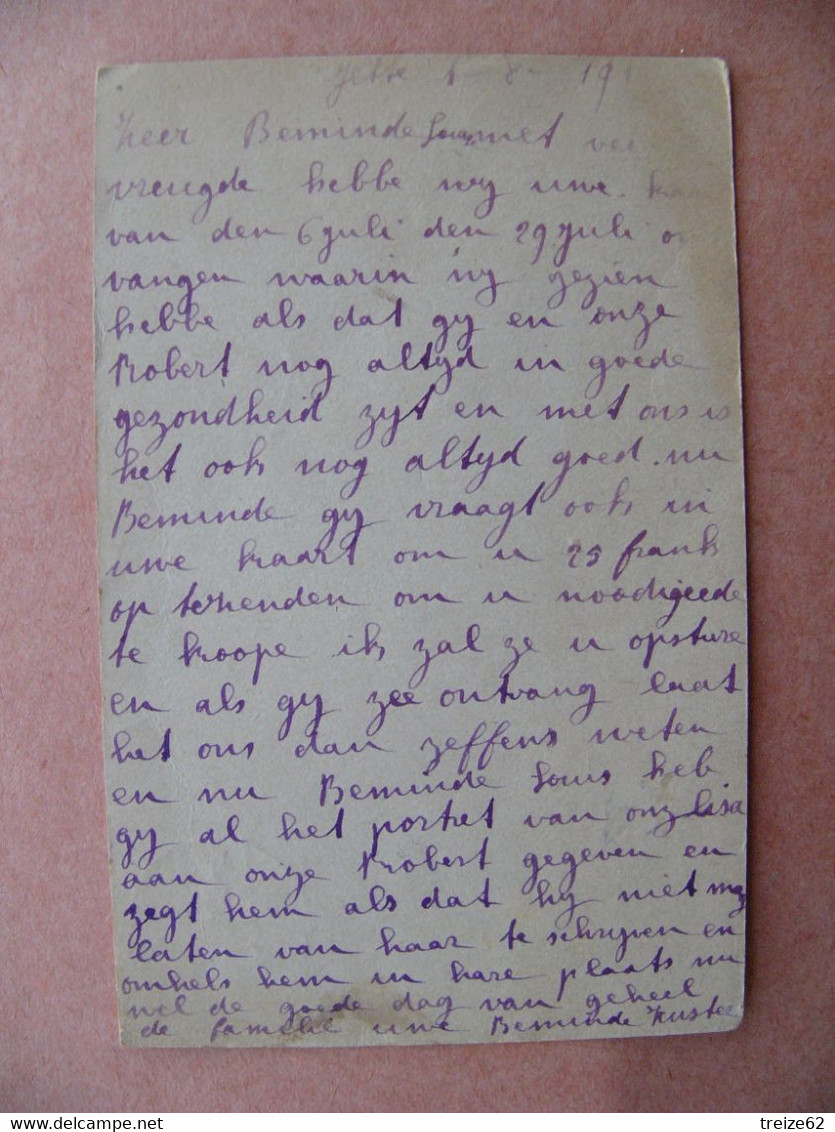 Jette 1 - 8 - 19
Zeer Beminde Louis met
vreugde hebbe wy uwe
van den 6 juli den 29 juli
vangen waarin wy gezien
hebbe als dat gy en onze
Robert nog altyd in goede
gezondheid zyt en met ons is
het ook nog altyd goed. nu
Beminde gy vraagt ook in
uwe kaart om u 25 frank
op te zenden om u noodigeede
te koope ik zal ze u opsture
en als gy zee ontvang laat
het ons dan zeffens weten
en nu Beminde Louis heb
gy al het portret van onz lisa
aan onze Robert gegeven en
zegt hem als dat hy niet mag
laten van haar te schryven en
omhels hem in hare plaats nu
wel de goede dag van geheel
de familie uwe Beminde Zuster
www.delcampe.net
treize62